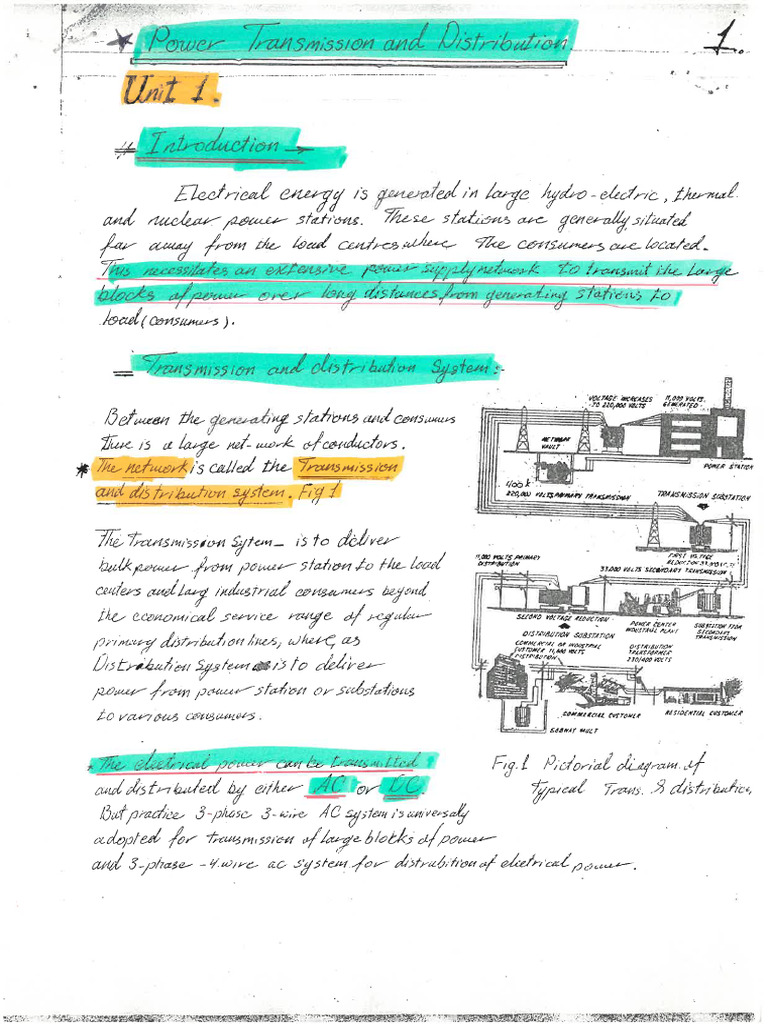 * Power Transmission and Distribution
1.
Unit 1.
# Introduction →
Electrical energy is generated in large hydro-electric, thermal
and nuclear power stations. These stations are generally, situated
far away from the load centres where The consumers are located.
This necessitates an extensive power supply network to transmit the large
blocks of power over long distances, from generating stations to
Load (consumers).
= Transmission and distribution System:-
Between the generating stations and consumers
there is a large net-work of conductors.
* The network is called the Transmission
and distribution system. Fig 1
The Transmission Sytem - is to deliver
bulk power from power station to the load
centers and larg industrial consumers beyond
the economical service range of regular
primary distribution lines, where, as
Distribution System is to deliver
power from power station or substations
to various consumers.
VOLTAGE INCREASES
TO 220,000 VOLTS
11,000 VOLTS
GENERATED
NETWORK
VAULT
POWER STATION
400 K
220,000 VOLTS PRIMARY TRANSMISSION
TRANSMISSION SUBSTATION
FIRST VOLTAGE
11,000 VOLTS PRIMARY
DISTRIBUTION
33,000 VOLTS SECONDARY TRANSMISSION
SECOND VOLTAGE REDUCTION
POWER CENTER
INDUSTRIAL PLANT
SUBSTATION FROM
SECONDARY
TRANSMISSION
DISTRIBUTION SUBSTATION
COMMERCIAL OR INDUSTRIAL
CUSTOMER 11,000 VOLTS
DISTRIBUTION
DISTRIBUTION
TRANSFORMER
230/400 VOLTS
COMMERCIAL CUSTOMER
RESIDENTIAL CUSTOMER
SUBWAY VAULT
Fig.1 Pictorial diagram of
typical Trans. & distribution
. The electrical power can be transmitted
and distributed by either AC or DC.
But practice 3-phase 3-wire AC system is universally
adopted for transmission of large blocks of power
and 3-phase -4.wire ac system for distrubition of electrical power.